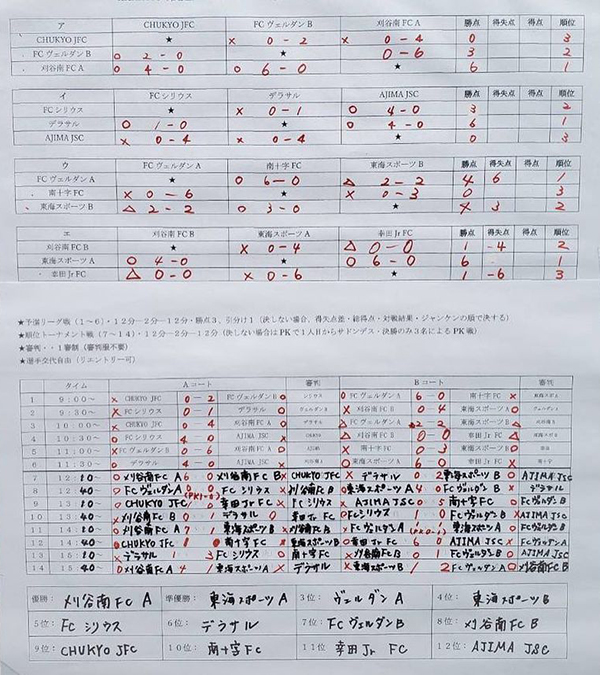 ア CHUKYO JFC FC ヴェルダン B 刈谷南 FC A 勝点 得失点 得点 順位
CHUKYO JFC ★ × 0 - 2 × 0 - 4 0 3
FC ヴェルダン B ○ 2 - 0 ★ 0 - 6 3 2
刈谷南 FC A ○ 4 - 0 ○ 6 - 0 ★ 6 1
イ FC シリウス デラサル AJIMA JSC 勝点 得失点 得点 順位
FC シリウス ★ × 0 - 1 ○ 4 - 0 3 2
デラサル ○ 1 - 0 ★ ○ 4 - 0 6 1
AJIMA JSC × 0 - 4 × 0 - 4 ★ 0 3
ウ FC ヴェルダン A 南十字 FC 東海スポーツ B 勝点 得失点 得点 順位
FC ヴェルダン A ★ ○ 6 - 0 △ 2 - 2 4 6 1
南十字 FC × 0 - 6 ★ × 0 - 3 0 3
東海スポーツ B △ 2 - 2 ○ 3 - 0 ★ 4 3 2
エ 刈谷南 FC B 東海スポーツ A 幸田 Jr FC 勝点 得失点 得点 順位
刈谷南 FC B ★ × 0 - 4 △ 0 - 0 1 -4 2
東海スポーツ A ○ 4 - 0 ★ ○ 6 - 0 6 1
幸田 Jr FC △ 0 - 0 × 0 - 6 ★ 1 -6 3
★予選リーグ戦（1～6）・12分―2分―12分・勝点3、引分け1（決しない場合、得失点差・総得点・対戦結果・ジャンケンの順で決する）
★順位トーナメント戦（7～14）・12分―2分―12分（決しない場合はPKで1人目からサドンデス・決勝のみ3名によるPK戦）
★審判・・1審制（審判服不要）
★選手交代自由（リエントリー可）
タイム Aコート 審判 Bコート 審判
1 9:00～ × CHUKYO JFC 0 - 2 FC ヴェルダン B ○ シリウス ○ FC ヴェルダン A 6 - 0 南十字 FC ×
2 9:30～ × FC シリウス 0 - 1 デラサル ○ × 刈谷南 FC B 0 4 東海スポーツ A ○
3 10:00～ × CHUKYO JFC 0 4 刈谷南 FC A ○ △ FC ヴェルダン A 2 - 2 東海スポーツ B △
4 10:30～ ○ FC シリウス 4 0 AJIMA JSC × △ 刈谷南 FC B 0 - 0 幸田 Jr FC △
5 11:00～ × FC ヴェルダン B 0 6 刈谷南 FC A ○ × 南十字 FC 0 3 東海スポーツ B ○
6 11:30～ ○ デラサル 4 0 AJIMA JSC × ○ 東海スポーツ A 6 0 幸田 Jr FC ×
7 12:10～ ○ 刈谷南 FC A 6 0 刈谷南 FC B × CHUKYO JFC × デラサル 0 2 東海スポーツ B ○ AJIMA JSC
8 12:40～ ○ FC ヴェルダン A 0 0 FC シリウス × 刈谷南 FC B ○ 東海スポーツ A 4 0 FC ヴェルダン B × デラサル
9 13:10～ ○ CHUKYO JFC 幸田 Jr FC × FC シリウス × AJIMA JSC 南十字 FC ○ FC ヴェルダン B
10 13:40～ 刈谷南 FC B デラサル 幸田 Jr FC FC シリウス 1 0 FC ヴェルダン B AJIMA JSC
11 14:10～ 刈谷南 FC A 東海スポーツ B 刈谷南 FC B FC ヴェルダン A 東海スポーツ A 南十字 FC
12 14:40～ CHUKYO JFC 南十字 FC × 東海スポーツ B 幸田 Jr FC 6 0 AJIMA JSC × デラサル
13 15:10～ × デラサル 1 3 FC シリウス ○ 南十字 FC × 刈谷南 FC B 0 1 FC ヴェルダン B ○ AJIMA JSC
14 15:40～ ○ 刈谷南 FC A 4 1 東海スポーツ A × デラサル × 東海スポーツ B 1 2 FC ヴェルダン A ○ 刈谷南 FC B
優勝： 刈谷南 FC A 準優勝： 東海スポーツ A 3位： ヴェルダン A 4位： 東海スポーツ B
5位： FC シリウス 6位： デラサル 7位： FC ヴェルダン B 8位： 刈谷南 FC B
9位： CHUKYO JFC 10位： 南十字 FC 11位 幸田 Jr FC 12位： AJIMA JSC